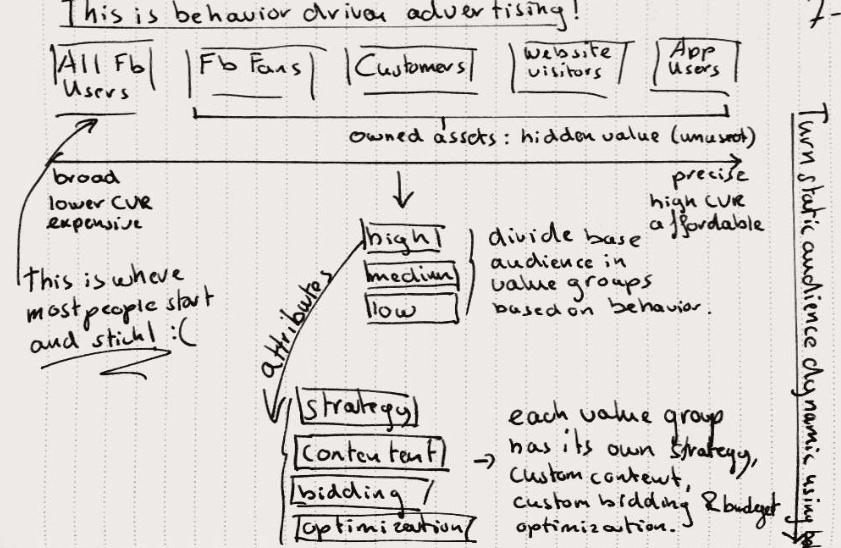 This is behavior driven advertising!
7-
All Fb
Users
Fb Fans
Customers
website
visitors
App
Users
owned assets: hidden value (unused)
broad
lower CVR
expensive
precise
high CVR
affordable
this is where
most people start
and stick! :(
high
medium
low
divide base
audience in
value groups
based on behavior.
attributes
strategy
Contentent
bidding
optimization
each value group
has its own strategy,
custom content,
custom bidding & budget
optimization.
Turn static audience dynamic using